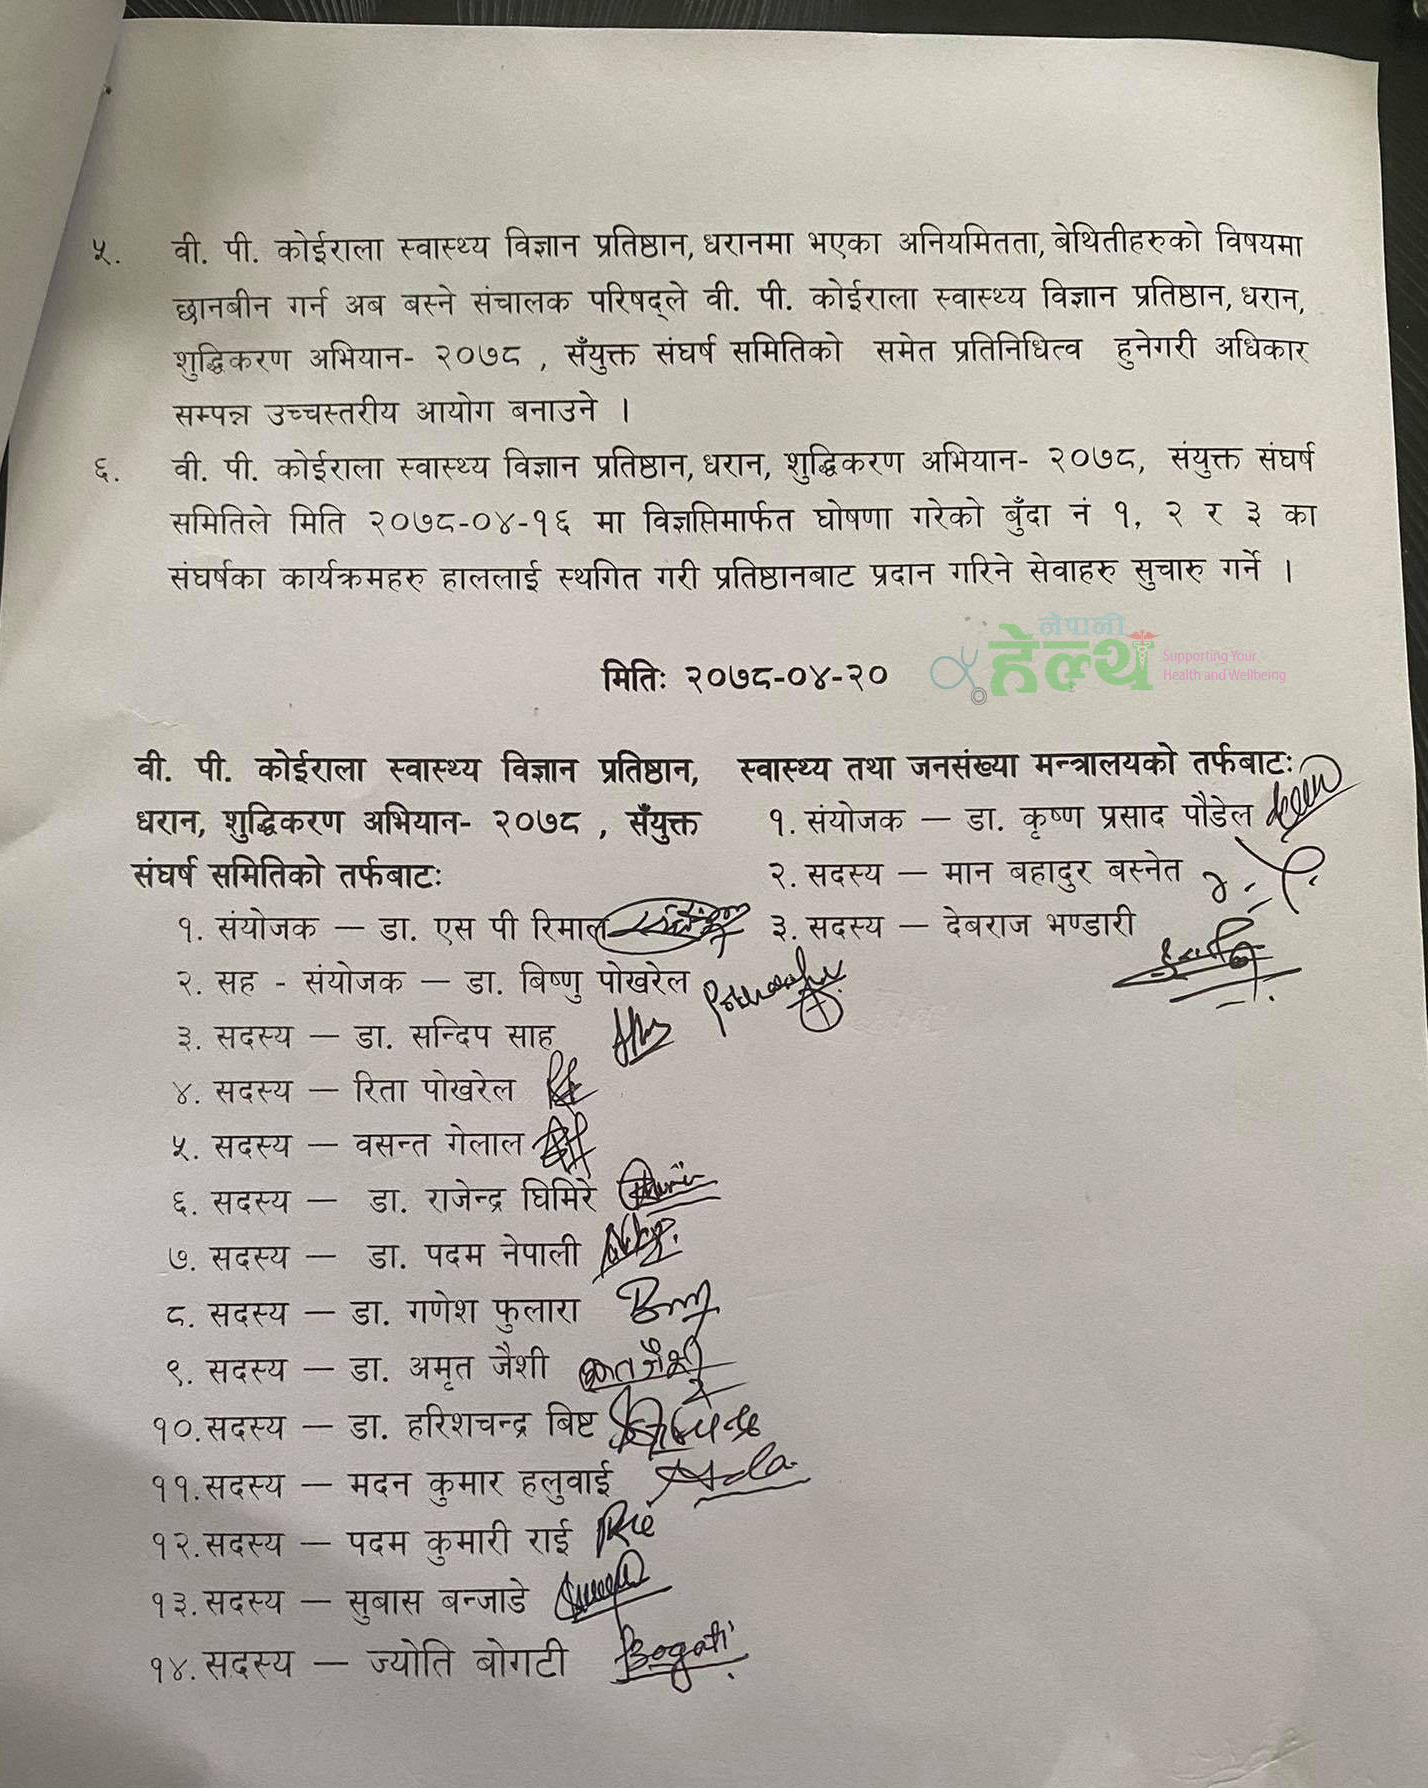 ५. वी. पी. कोईराला स्वास्थ्य विज्ञान प्रतिष्ठान, धरानमा भएका अनियमितता, बेथितीहरुको विषयमा
छानबीन गर्न अब बस्ने संचालक परिषद्ले वी. पी. कोईराला स्वास्थ्य विज्ञान प्रतिष्ठान, धरान,
शुद्धिकरण अभियान- २०७८ , सँयुक्त संघर्ष समितिको समेत प्रतिनिधित्व हुनेगरी अधिकार
सम्पन्न उच्चस्तरीय आयोग बनाउने ।
६. वी. पी. कोईराला स्वास्थ्य विज्ञान प्रतिष्ठान, धरान, शुद्धिकरण अभियान- २०७८, संयुक्त संघर्ष
समितिले मिति २०७८-०४-१६ मा विज्ञप्तिमार्फत घोषणा गरेको बुँदा नं १, २ र ३ का
संघर्षका कार्यक्रमहरु हाललाई स्थगित गरी प्रतिष्ठानबाट प्रदान गरिने सेवाहरु सुचारु गर्ने ।
नेपाली
हेल्थ
Supporting Your
Health and Wellbeing
मितिः २०७८-०४-२०
वी. पी. कोईराला स्वास्थ्य विज्ञान प्रतिष्ठान,
धरान, शुद्धिकरण अभियान- २०७८ , सँयुक्त
संघर्ष समितिको तर्फबाटः
१. संयोजक — डा. एस पी रिमाल
२. सह - संयोजक — डा. बिष्णु पोखरेल
३. सदस्य — डा. सन्दिप साह
४. सदस्य — रिता पोखरेल
५. सदस्य — वसन्त गेलाल
६. सदस्य — डा. राजेन्द्र घिमिरे
७. सदस्य — डा. पदम नेपाली
८. सदस्य — डा. गणेश फुलारा
९. सदस्य — डा. अमृत जैशी
१०. सदस्य — डा. हरिशचन्द्र बिष्ट
११. सदस्य — मदन कुमार हलुवाई
१२. सदस्य — पदम कुमारी राई
१३. सदस्य — सुबास बन्जाडे
१४. सदस्य — ज्योति बोगटी Bogati
स्वास्थ्य तथा जनसंख्या मन्त्रालयको तर्फबाटः
१. संयोजक — डा. कृष्ण प्रसाद पौडेल
२. सदस्य — मान बहादुर बस्नेत
३. सदस्य — देबराज भण्डारी